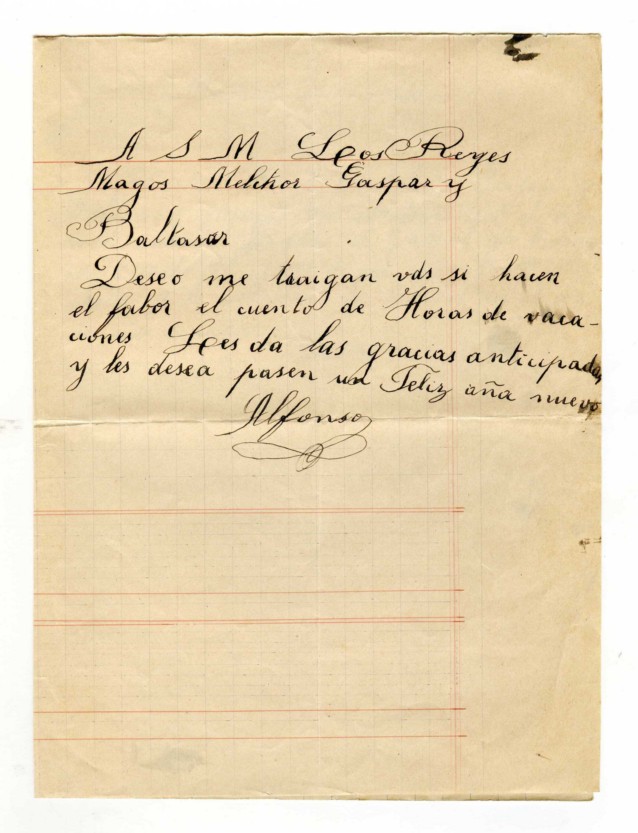 A S M Los Reyes
Magos Melchor Gaspar y
Baltasar
Deseo me traigan vds si hacen
el fabor el cuento de Horas de vaca-
ciones Les da las gracias anticipadas
y les desea pasen un Feliz aña nuevo
Alfonso